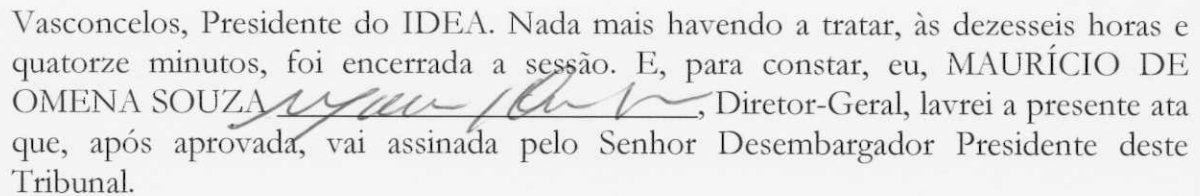 Vasconcelos, Presidente do IDEA. Nada mais havendo a tratar, às dezesseis horas e
quatorze minutos, foi encerrada a sessão. E, para constar, eu, MAURÍCIO DE
OMENA SOUZA, Diretor-Geral, lavrei a presente ata
que, após aprovada, vai assinada pelo Senhor Desembargador Presidente deste
Tribunal.